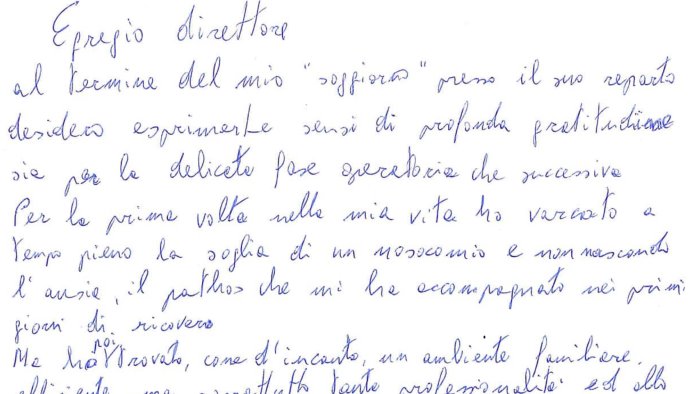 Egregio direttore
al termine del mio "soggiorno" presso il suo reparto
desidero esprimerLe sensi di profonda gratitudine
sia per la delicata fase operatoria che successiva
Per la prima volta nella mia vita ho varcato a
tempo pieno la soglia di un nosocomio e non nascondo
l'ansia, il pathos che mi ha accompagnato nei primi
giorni di ricovero
Ma ho poi trovato, come d'incanto, un ambiente familiare,
efficiente, ma soprattutto tanta professionalità ed allo